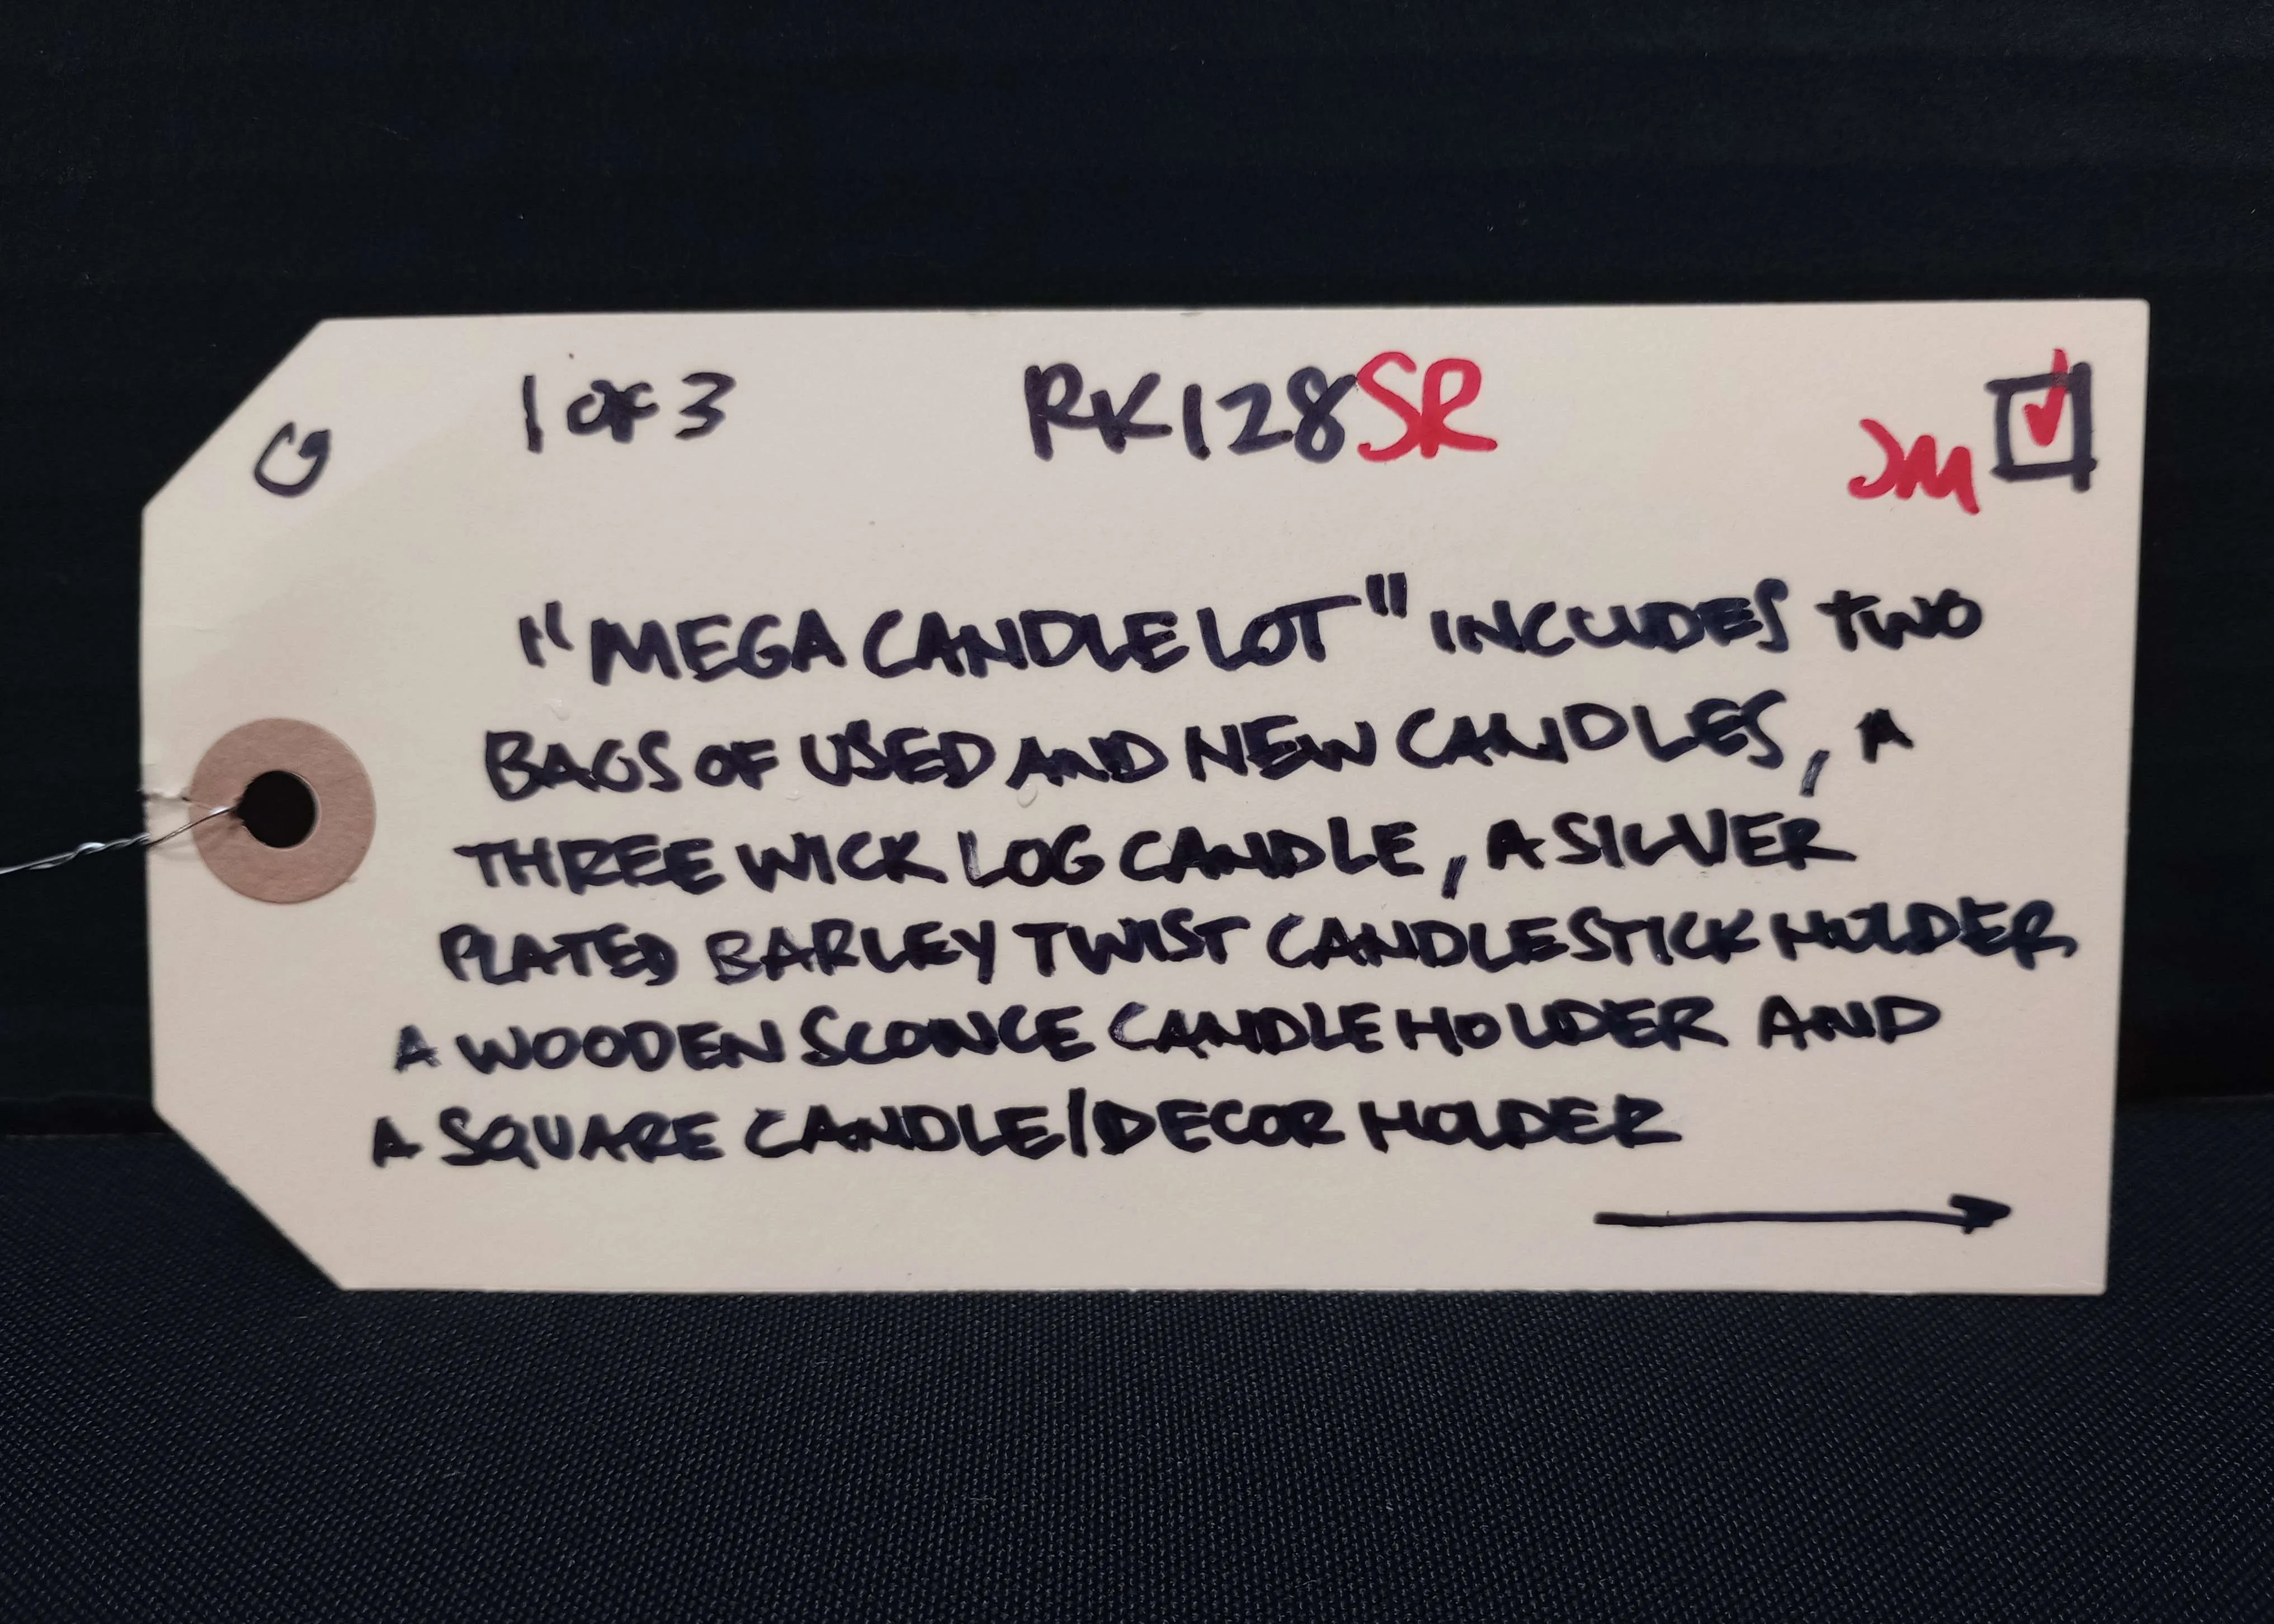 G 1 of 3 RK128SR JM
"MEGA CANDLE LOT" INCLUDES TWO
BAGS OF USED AND NEW CANDLES, A
THREE WICK LOG CANDLE, A SILVER
PLATED BARLEY TWIST CANDLESTICK HOLDER,
A WOODEN SCONCE CANDLE HOLDER AND
A SQUARE CANDLE/DECOR HOLDER